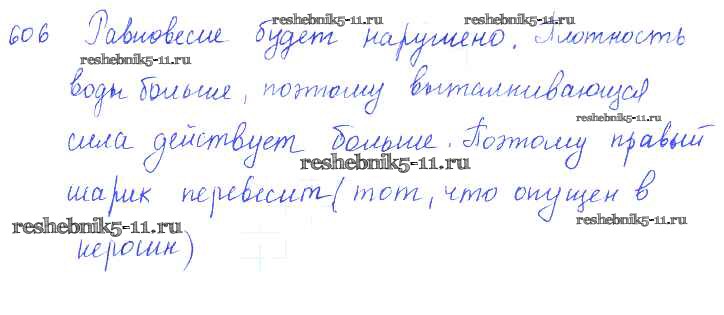 reshebnik5-11.ru reshebnik5-11.ru
606 Равновесие будет нарушено. Плотность
reshebnik5-11.ru
воды больше, поэтому выталкивающая
reshebnik5-11.ru
сила действует больше. Поэтому правый
reshebnik5-11.ru
шарик перевесит (тот, что опущен в
reshebnik5-11.ru reshebnik5-11.ru
керосин)